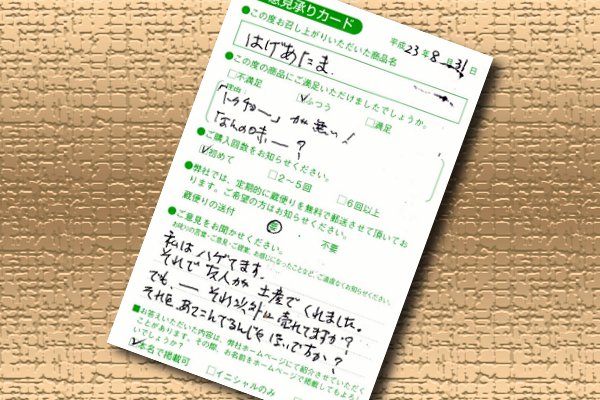 意見承りカード
平成23年8月31日
●この度お召し上がりいただいた商品名
はげあたま
●この度の商品にご満足いただけましたでしょうか。
□不満足 ☑ふつう □満足
理由:
「トクチョー」が無い！
なんの味ー？
●ご購入回数をお知らせください。
☑初めて □2～5回 □6回以上
●弊社では、定期的に蔵便りを無料で郵送させて頂いてお
ります。ご希望の方はお知らせください。
蔵便りの送付 要 ・ 不要
●ご意見をお聞かせください。
お叱りの言葉・ご意見・ご提案、お感じになったことなど、ご遠慮なくお知らせください。
私はハゲてます。
それで友人が土産でくれました。
でも、ー それ以外に売れてますか？
それを、あてこんでるんじゃないですか？
■お答えいただいた内容は、弊社ホームページにて紹介させていただく
ことがあります。その際、お名前をホームページで掲載してもよろし
いでしょうか？
☑本名で掲載可 □イニシャルのみ